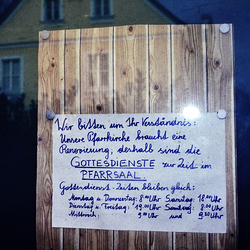 Wir bitten um Ihr Verständnis:
Unsere Pfarrkirche braucht eine
Renovierung, deshalb sind die
GOTTESDIENSTE zur Zeit im
PFARRSAAL.
Gottesdienst-Zeiten bleiben gleich:
Montag u. Donnerstag: 8 Uhr Samstag: 18 Uhr
Dienstag u. Freitag: 19 Uhr Sonntag: 8 Uhr
Mittwoch: 9 Uhr und 9 30 Uhr